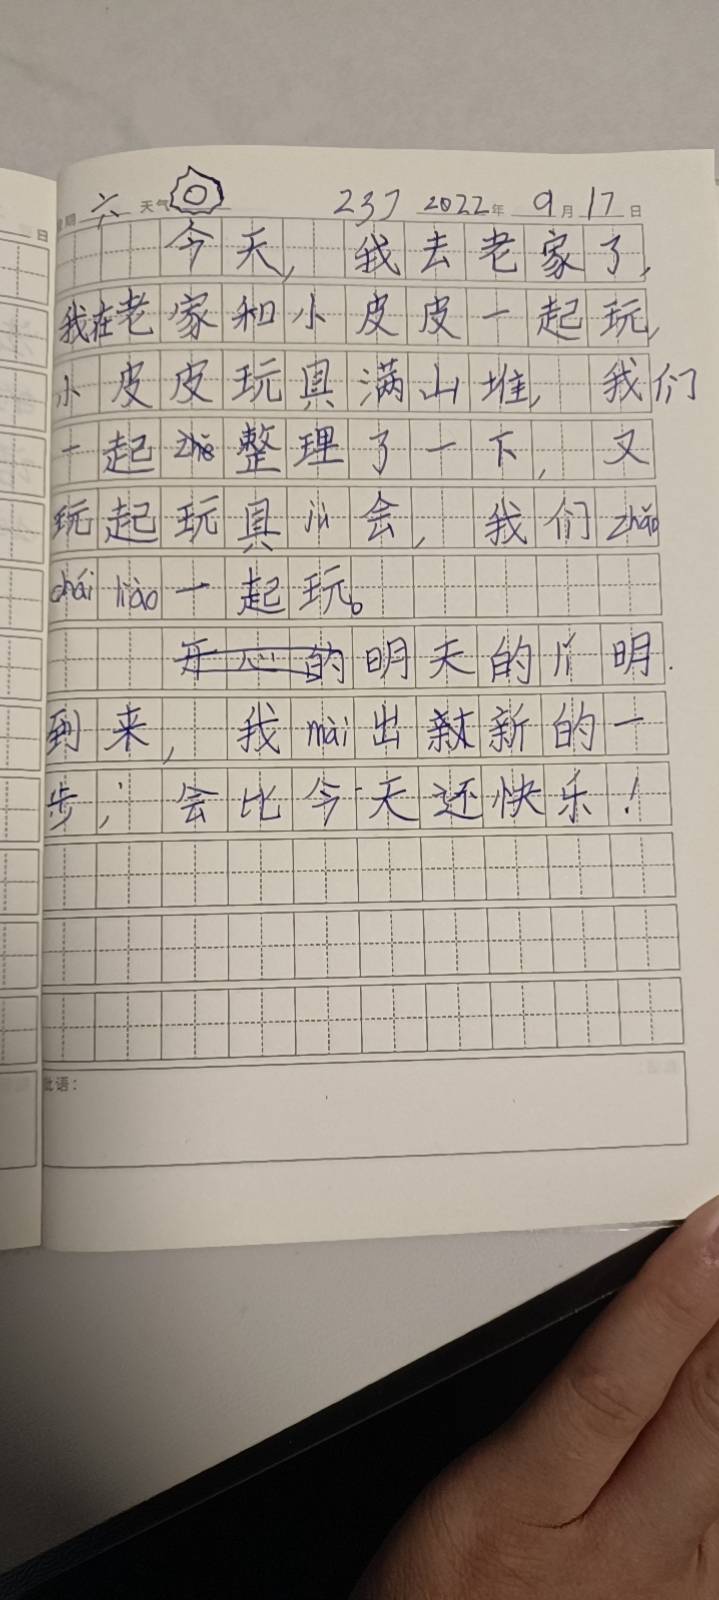 期 六 天气 237 2022年 9月17日
今天,我去老家了,
我在老家和小皮皮一起玩,
小皮皮玩具满山堆,我们
一起zhě整理了一下,又
玩起玩具 会,我们zhǎo
chái liào一起玩。
开心的明天的 明.
到来,我mài出新的一
步,会比今天还快乐!
批语: